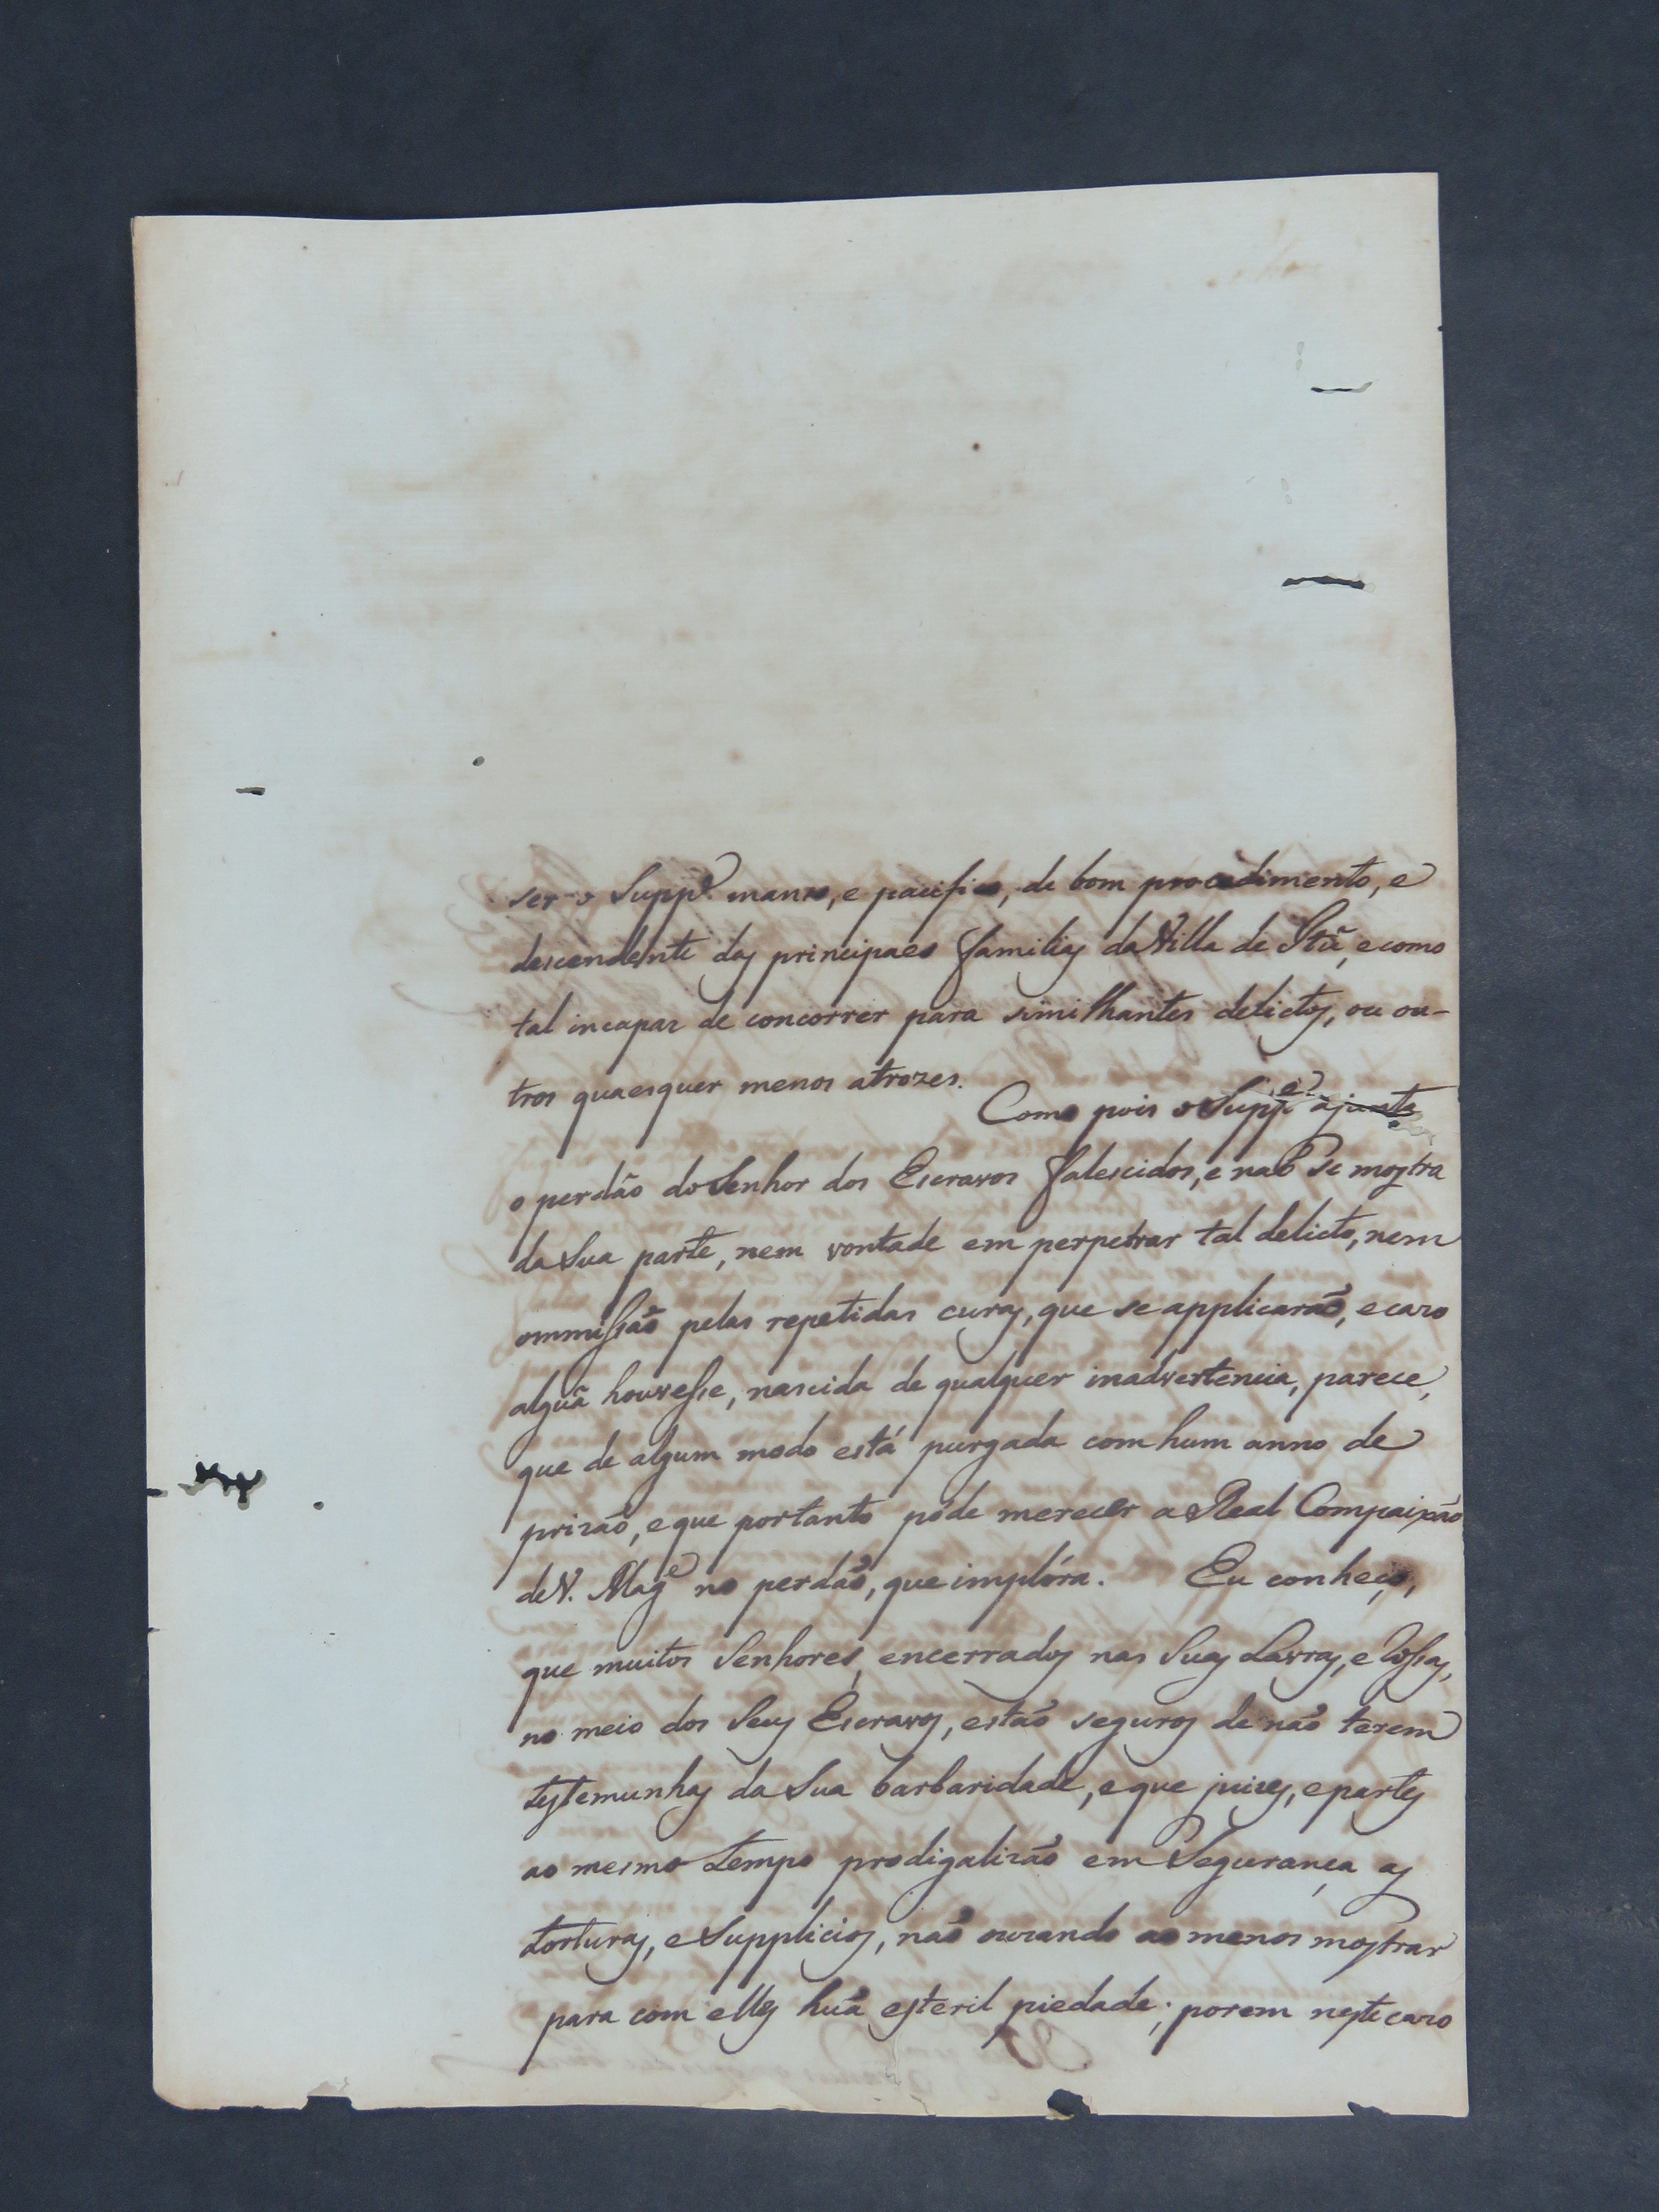 ser o Supp.e manso, e pacifico, de bom procedimento, e
descendente das principaes familias da Villa de Itũ, e como
tal incapaz de concorrer para similhantes delictos, ou ou-
tros quaesquer menos atrozes.
Como pois o Supp.e ajunta
o perdão do Senhor dos Escravos falescidos, e naõ se mostra
da Sua parte, nem vontade em perpetrar tal delicto, nem
ommissaõ pelas repetidas curas, que se applicaraõ, e cazo
algũa houvesse, nascida de qualquer inadvertencia, parece,
que de algum modo está purgada com hum anno de
prizaõ, e que portanto póde merecer a Real Compaixão
de V. Mag.e no perdaõ, que implóra. Eu conheço,
que muitos Senhores, encerrados nas Suas Lavras, e Rossas,
no meio dos Seus Escravos, estaõ seguros de naõ terem
testemunhas da Sua barbaridade, e que juizes, e partes
ao mesmo tempo prodigalizaõ em Segurança as
torturas, e Supplicios, naõ ouzando ao menos mostrar
para com elles huã esteril piedade; porem neste cazo